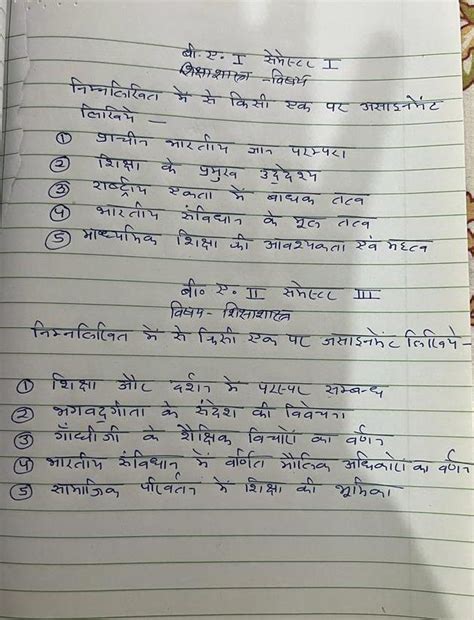 बी. ए. I सेमेस्टर I
शिक्षाशास्त्र - विषय
निम्नलिखित में से किसी एक पर असाइनमेंट
लिखिये —
① प्राचीन भारतीय ज्ञान परम्परा
② शिक्षा के प्रमुख उद्देश्य
③ राष्ट्रीय एकता में बाधक तत्व
④ भारतीय संविधान के मूल तत्व
⑤ माध्यमिक शिक्षा की आवश्यकता एवं महत्व
बी० ए० II सेमेस्टर III
विषय - शिक्षाशास्त्र
निम्नलिखित में से किसी एक पर असाइनमेंट लिखिये -
① शिक्षा और दर्शन में परस्पर सम्बन्ध
② भगवद्गीता के संदेश की विवेचना
③ गाँधीजी के शैक्षिक विचारों का वर्णन
④ भारतीय संविधान में वर्णित मौलिक अधिकारों का वर्णन
⑤ सामाजिक परिवर्तन में शिक्षा की भूमिका